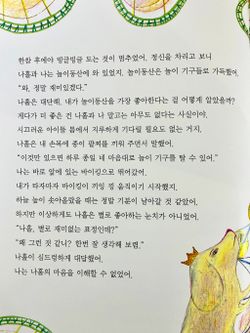 한참 후에야 빙글빙글 도는 것이 멈추었어. 정신을 차리고 보니
나홀과 나는 놀이동산에 와 있었지. 놀이동산은 놀이 기구들로 가득했어.
"와, 정말 재미있겠다."
나홀은 대단해. 내가 놀이동산을 가장 좋아한다는 걸 어떻게 알았을까?
게다가 더 좋은 건 나홀과 나 말고는 아무도 없다는 사실이야.
시끄러운 아이들 틈에서 지루하게 기다릴 필요도 없는 거지.
나홀은 내 손목에 종이 팔찌를 끼워 주면서 말했어.
"이것만 있으면 하루 종일 네 마음대로 놀이 기구를 탈 수 있어."
나는 바로 앞에 있는 바이킹으로 뛰어갔어.
내가 타자마자 바이킹이 끼익 낑 움직이기 시작했지.
하늘 높이 솟아올랐을 때는 정말 기분이 날아갈 것 같았어.
하지만 이상하게도 나홀은 별로 좋아하는 눈치가 아니었어.
"나홀, 별로 재미없는 표정인데?"
"왜 그런 것 같니? 한번 잘 생각해 보렴."
나홀이 심드렁하게 대답했어.
나는 나홀의 마음을 이해할 수 없었어.